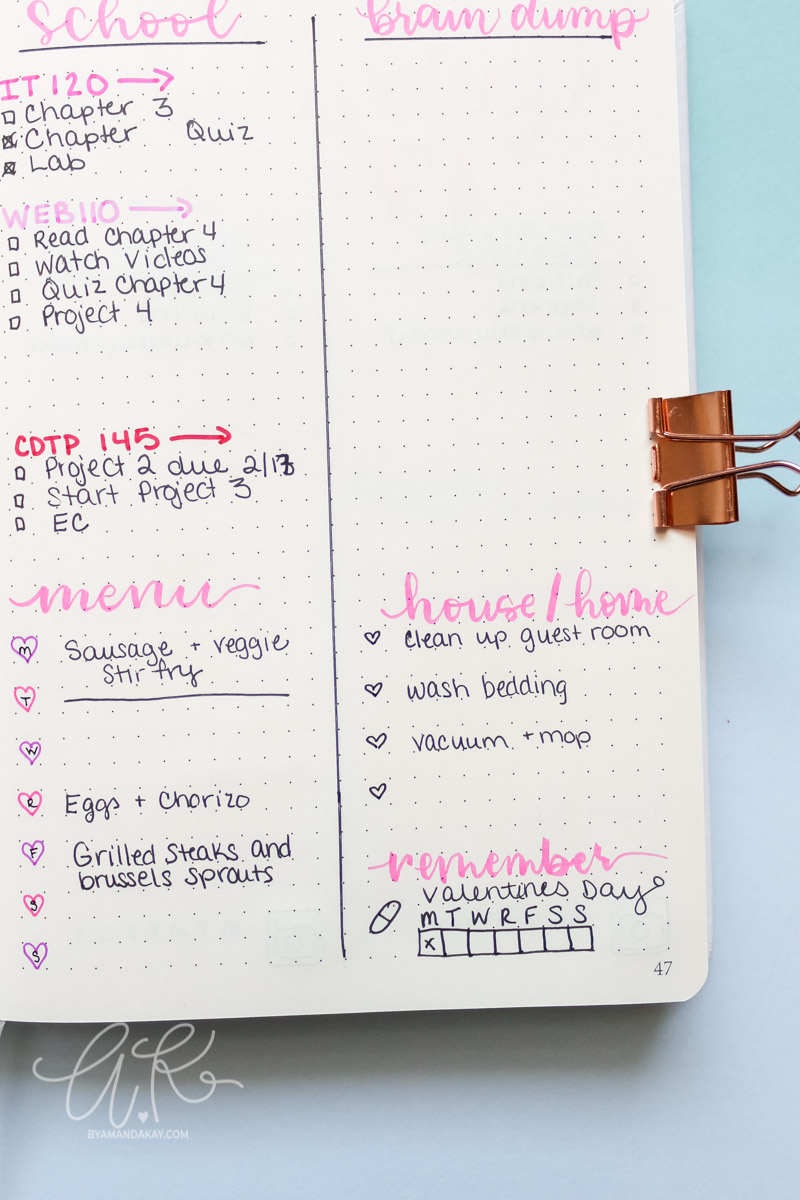 school
IT 120
Chapter 3
Chapter Quiz
Lab
WEB110
Read Chapter 4
Watch Videos
Quiz Chapter 4
Project 4
CDTP 145
Project 2 due 2/13
Start Project 3
EC
menu
M Sausage + veggie
Stir fry
T
W
R Eggs + Chorizo
F Grilled Steaks and
brussels sprouts
S
S
brain dump
house/home
clean up guest room
wash bedding
vacuum + mop
remember
Valentines Day
M T W R F S S
x
47
A.K
BYAMANDAKAY.COM